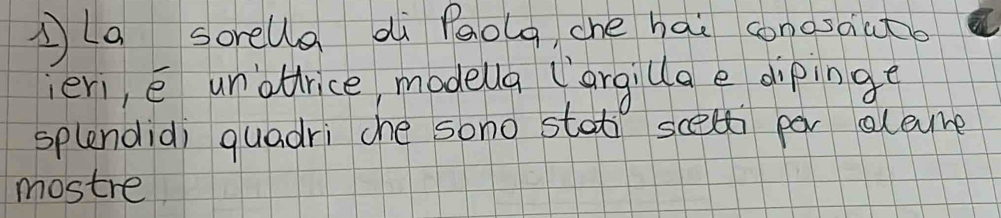 1) La sorella di Paola, che hai conosciuto
ieri, è un'attrice, modella l'argilla e dipinge
splendidi quadri che sono stati scelti per alcune
mostre